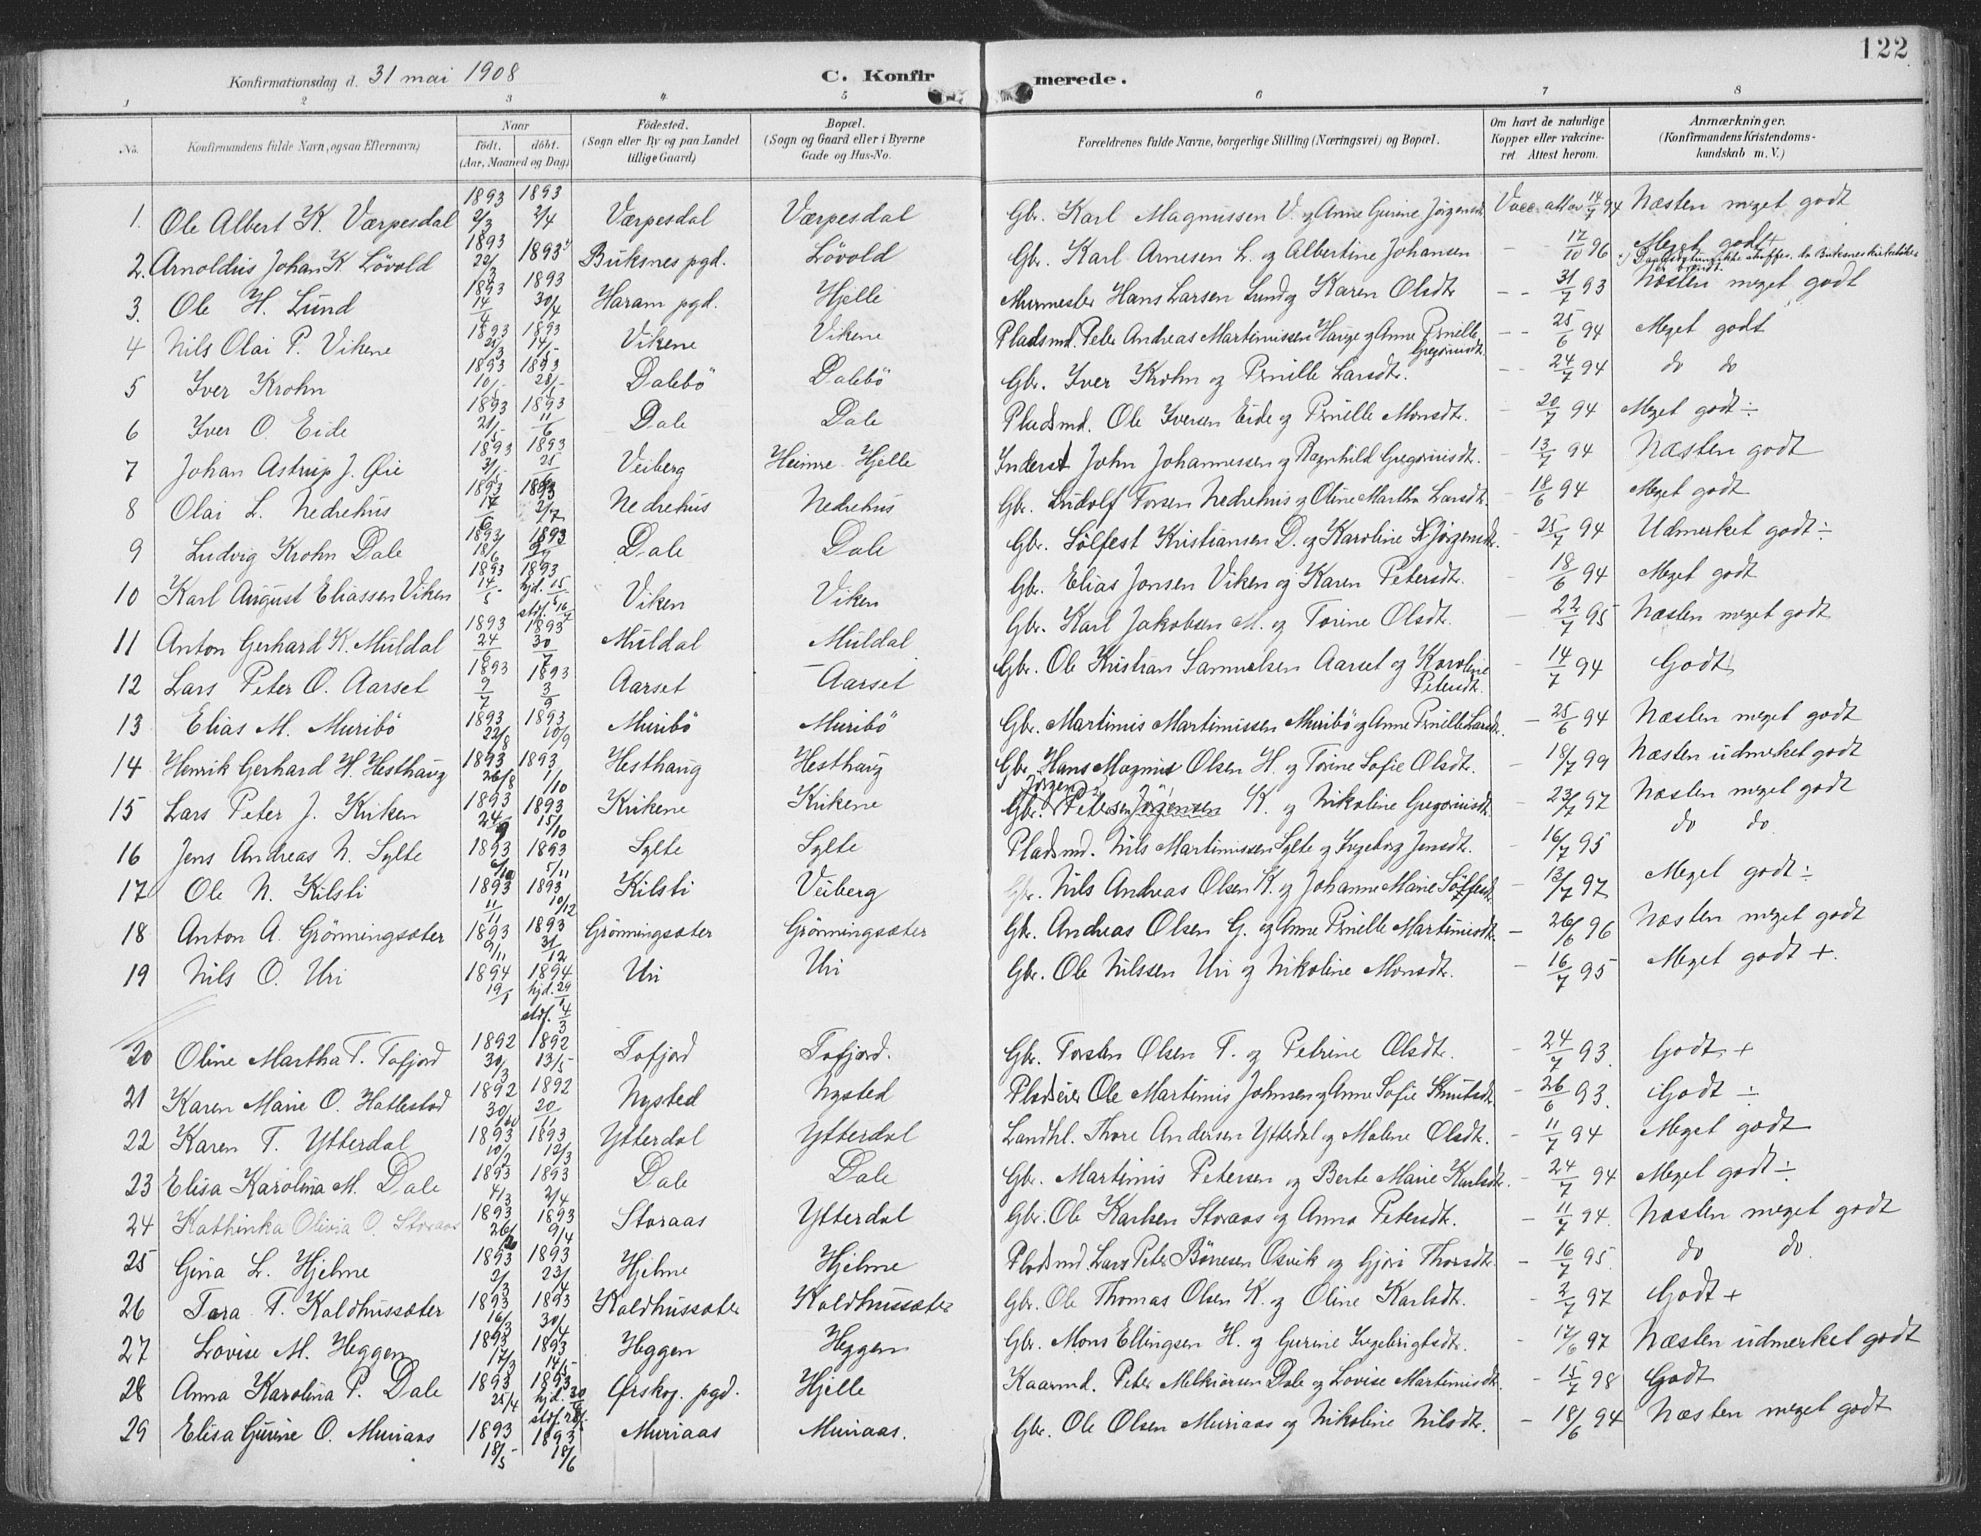 122
Konfirmationsdag d. 31 mai 1908 C. Konfirmerede.
1 2 3 4 5 6 7 8
No. Konfirmandens fulde Navn, ogsaa Efternavn) Naar født. døbt. (Aar, Maaned og Dag) Fødested. (Sogn eller By og paa Landet tillige Gaard) Bopæl. (Sogn og Gaard eller i Byerne Gade og Hus-No. Forældrenes fulde Navne, borgerlige Stilling (Næringsvei) og Bopæl. Om havt de naturlige Kopper eller vakcineret Attest herom. Anmærkninger. (Konfirmandens Kristendomskundskab m. V.)
1. Ole Albert K. Værpesdal 1893 2/3 1893 2/4 Værpesdal Værpesdal Gbr. Karl Magnussen V. og Anne Gurine Jørgensdt. Vacc. att av 14/7 94 Næsten meget godt
2. Arnoldus Johan K Lövold 1893 22/3 1893 Buksnes pgd. Lövold Gbr. Karl Arnesen L. og Albertine Johansen 17/10 96 Meget godt
3. Ole H. Lund 1893 14/4 1893 30/4 Haram pgd. Hjelle Murmester Hans Larsen Lund og Karen Olsdtr - - 31/7 93 Næsten meget godt
4 Nils Olai P. Vikene 1893 1893 14/5 Vikene Vikene Pladsmd. Peter Andreas Martinussen Hauge og Anne Pernille Gregoriusdt. - - 25/6 94 Meget godt
5 Iver Krohn 1893 10/5 1893 28/5 Dalebö Dalebö Gbr. Iver Krohn og Pernille Larsdtr. - - 24/7 94 do do
6 Iver O. Eide 1893 21/5 1893 11/6 Dale Dale Pladsmd. Ole Iversen Eide og Pernille Monsdtr. - 20/7 94 Meget godt ÷
7 Johan Astrup J. Øie 1893 1893 25/ Veiberg Heimre Hjelle Inderst John Johannessen og Ragnhild Gregoriusdt. - 13/7 94 Næsten godt
8 Olai L. Nedrehus 1893 14/6 1893 2/7 Nedrehus Nedrehus Gbr. Ludolf Torsen Nedrehus og Oline Martha Larsdtr - 18/6 94 Meget godt
9 Ludvig Krohn Dale 1893 18/6 1893 Dale Dale Gbr. Sölfest Kristiansen D. og Karoline Jørgensdt. - 25/7 94 Udmerket godt ÷
10 Karl August Eliassen Viken 1893 14/5 1893 hjd. 15/5 stdf. 16/7 Viken Viken Gbr. Elias Jonsen Viken og Karen Petersdt. - 18/6 94 Meget godt
11 Anton Gerhard K. Muldal 1893 24/6 1893 30/7 Muldal Muldal Gbr. Karl Jakobsen M. og Torine Olsdtr. - 22/7 95 Næsten meget godt
12 Lars Peter O. Aarset 1893 9/7 1893 3/9 Aarset Aarset Gbr. Ole Kristian Samuelsen Aarset og Karoline Petersdt. - 14/7 94 Godt
13 Elias M. Muribö 1893 22/8 1893 10/9 Muribö Muribö Gbr. Martinus Martinussen Muribö og Anne Pernille Larsdtr. - 25/6 94 Næsten meget godt
14 Henrik Gerhard H. Hesthaug 1893 26/8 1893 1/10 Hesthaug Hesthaug Gbr. Hans Magnus Olsen H. og Torine Sofie Olsdtr. - 18/7 99 Næsten udmerket godt
15 Lars Peter J. Kriken 1893 24/9 1893 15/10 Krikene Krikene Gbr. Jørgen Petersen Jörgensen K. og Nikoline Gregoriusdt. - 23/7 97 Næsten meget godt
16 Jens Andreas N. Sylte 1893 6/10 1893 5/11 Sylte Sylte Pladsmd. Nils Martinussen Sylte og Ingeborg Jensdt. - 16/7 95 do do
17 Ole N. Kilsti 1893 11/11 1893 10/12 Kilsti Veiberg Gbr. Nils Andreas Olsen K. og Johanne Marie Sölfestdt. - 13/7 97 Meget godt ÷
18 Anton A. Grönningsæter 1893 9/11 1893 31/12 Grönningsæter Grönningsæter Gbr. Andreas Olsen G. og Anne Pernille Martinusdt. - 26/6 96 Næsten meget godt
19 Nils O. Uri 1894 19/1 1894 hjd. 29/1 stdf. 4/3 Uri Uri Gbr. Ole Nilssen Uri og Nikoline Monsdtr. - 16/7 95 Meget godt +.
20 Oline Martha T. Tofjord 1892 30/3 1892 13/5 Tofjord Tofjord. Gbr. Torsten Olsen T. og Petrine Olsdtr. - 24/7 93. Godt +
21 Karen Marie O. Hatlestad 1892 30/10 1892 20/11 Nysted Nysted Pladseier Ole Martinus Johnsen og Anne Sofie Knutsdt. - 26/6 93. Godt ÷
22 Karen T. Ytterdal 1893 10/2 1893 12/3 Ytterdal Ytterdal Landhl. Thore Andersen Ytterdal og Malene Olsdtr. - 11/7 94 Meget godt
23 Elisa Karolina M. Dale 1893 4/3 1893 2/4 Dale Dale Gbr. Martinus Petersen og Berte Marie Karlsdtr. - 24/7 94 Meget godt ÷
24 Kathinka Olivia O. Storaas 1893 26/ 1893 9/4 Storaas Ytterdal Gbr. Ole Karlsen Storaas og Anna Petersdtr. - 11/7 94. Næsten meget godt
25 Gina L. Hjelme 1893 2/3 1893 23/4 Hjelme Hjelme Pladsmd. Lars Peter Bönesen Osvik og Gjöri Thorsdtr - 16/7 95. do do.
26 Tara T. Koldhussæter 1893 16/3 1893 30/4 Koldhussæter Koldhussæter Gbr. Ole Thomas Olsen K. og Oline Karlsdt. - 2/7 97 Godt +
27 Lovise M. Heggen 1893 17/3 1893 14/5 Heggen Heggen Gbr. Mons Ellingsen H. og Gurine Ingebrigtsdtr. - 17/6 97 Næsten udmerket godt
28 Anna Karolina P. Dale 1893 25/4 1893 hjd. 30/ stdf. Ørskog. pgd. Hjelle Kaarmd. Peter Melkiorsen Dale og Lovise Martinusdt. - 15/7 98 Godt
29 Elisa Gurine O. Muriaas 1893 18/5 1893 18/6 Muriaas Muriaas. Gbr. Ole Olsen Muriaas og Nikoline Nilsdtr. - 18/6 94 Næsten meget godt